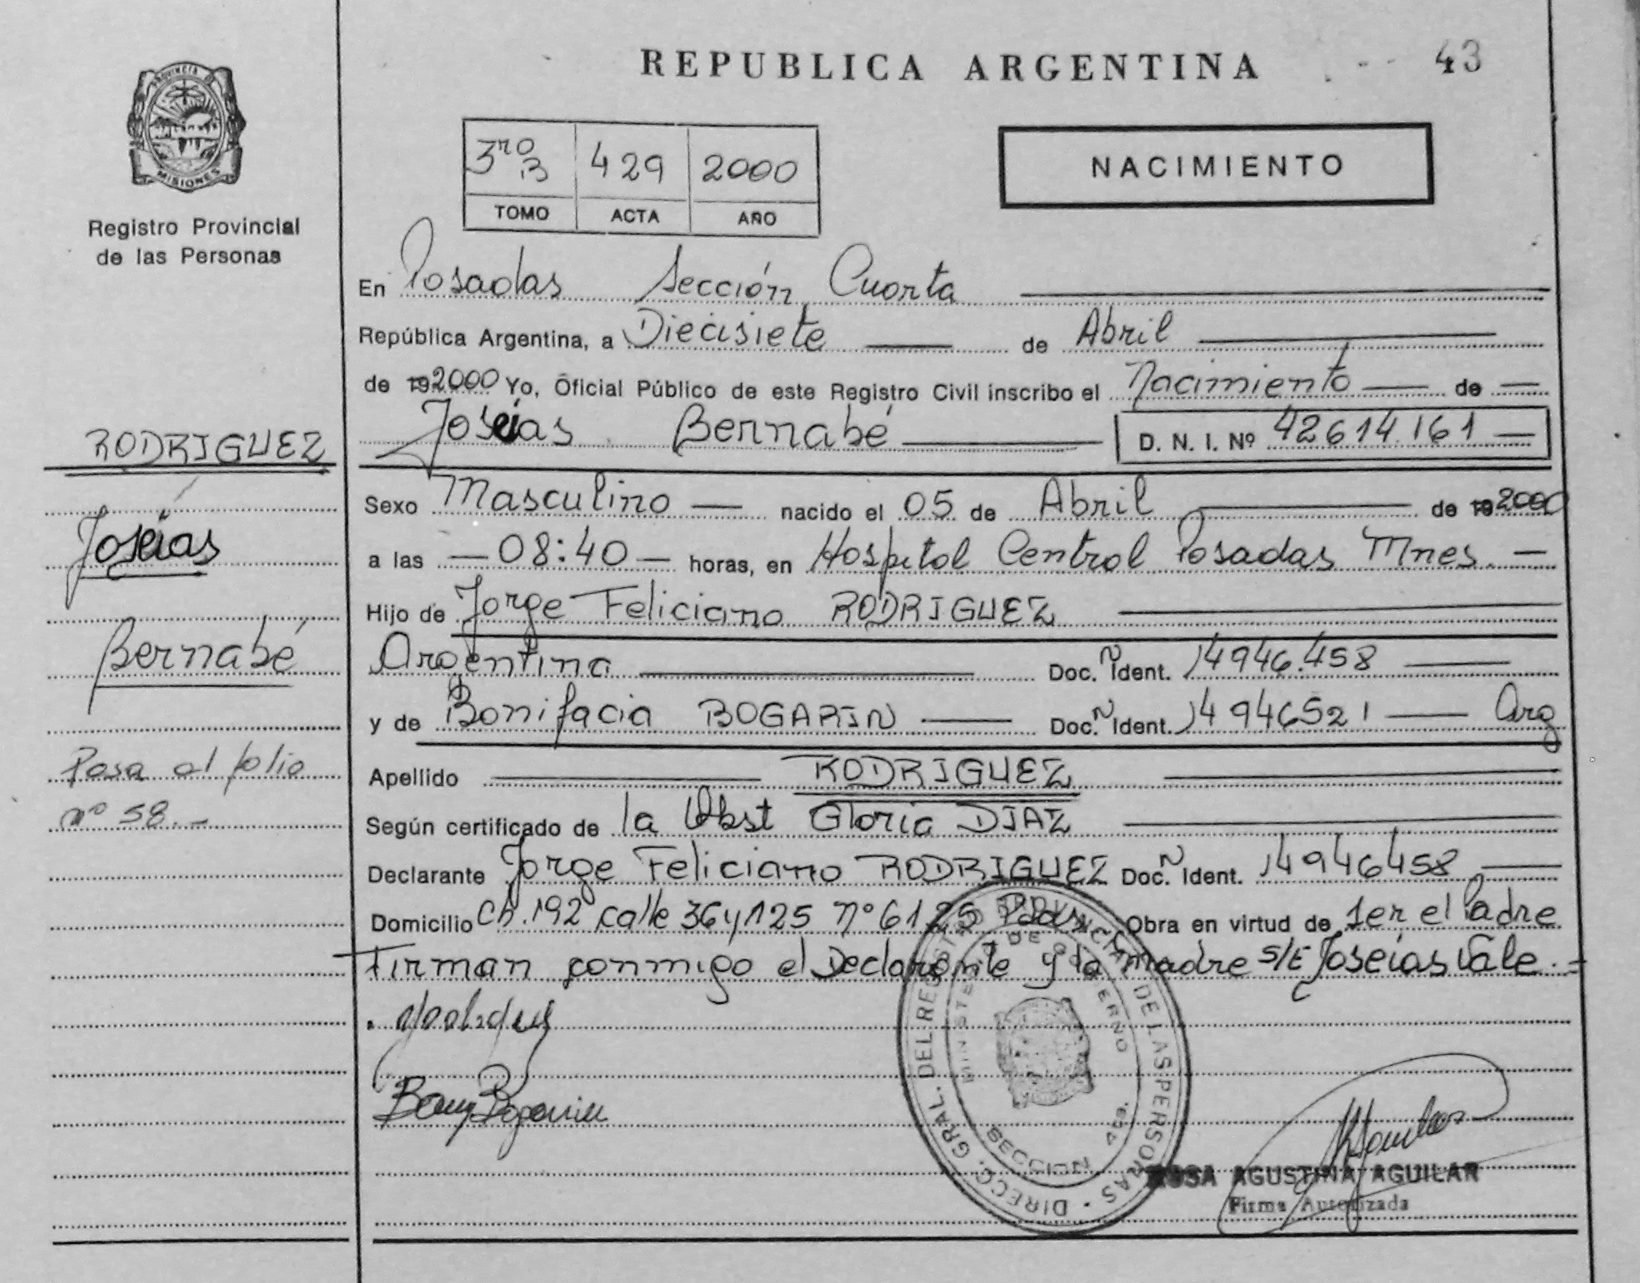 REPUBLICA ARGENTINA
43
PROVINCIA DE
MISIONES
Registro Provincial
de las Personas
3ro B 429 2000
TOMO ACTA AÑO
NACIMIENTO
En Posadas Sección Cuarta
República Argentina, a Diecisiete de Abril
de 192000 Yo, Oficial Público de este Registro Civil inscribo el Nacimiento de
Joseias Bernabé D. N. I. Nº 42614.161
RODRIGUEZ
Joseias
Bernabé
Pasa al folio
nº 58.-
Sexo Masculino nacido el 05 de Abril de 192000
a las 08:40 horas, en Hospital Central Posadas Mnes.
Hijo de Jorge Feliciano RODRIGUEZ
Argentina Doc. N Ident. 14946.458
y de Bonifacia BOGARIN Doc. N Ident. 14946521 Arg
Apellido RODRIGUEZ
Según certificado de la Obst Gloria DIAZ
Declarante Jorge Feliciano RODRIGUEZ Doc. N Ident. 14946458
Domicilio Ch.192 calle 36y125 nº6125 Pdas Obra en virtud de 1er el Padre
Firman conmigo el Declarante y la Madre S/E Joseias Vale.=
DIRECC. GRAL. DEL REGISTRO PROVINCIAL DE LAS PERSONAS
MINISTERIO DE GOBIERNO
SECCION 4ta.
ROSA AGUSTINA AGUILAR
Firma Autorizada